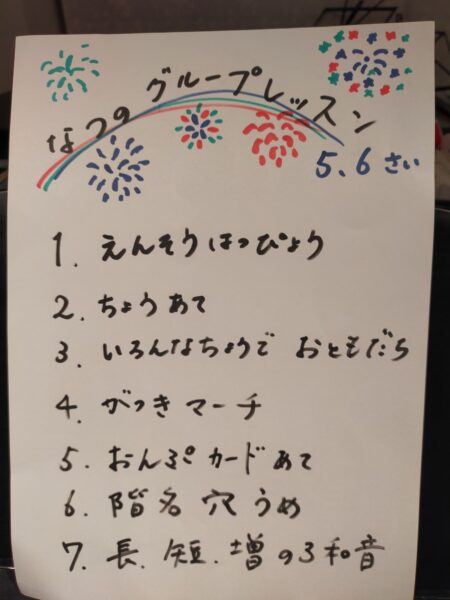 なつのグループレッスン
5、6さい
1. えんそうはっぴょう
2. ちょうあて
3. いろんなちょうで おともだち
4. がっきマーチ
5. おんぷカードあて
6. 階名穴うめ
7. 長、短、増の3和音